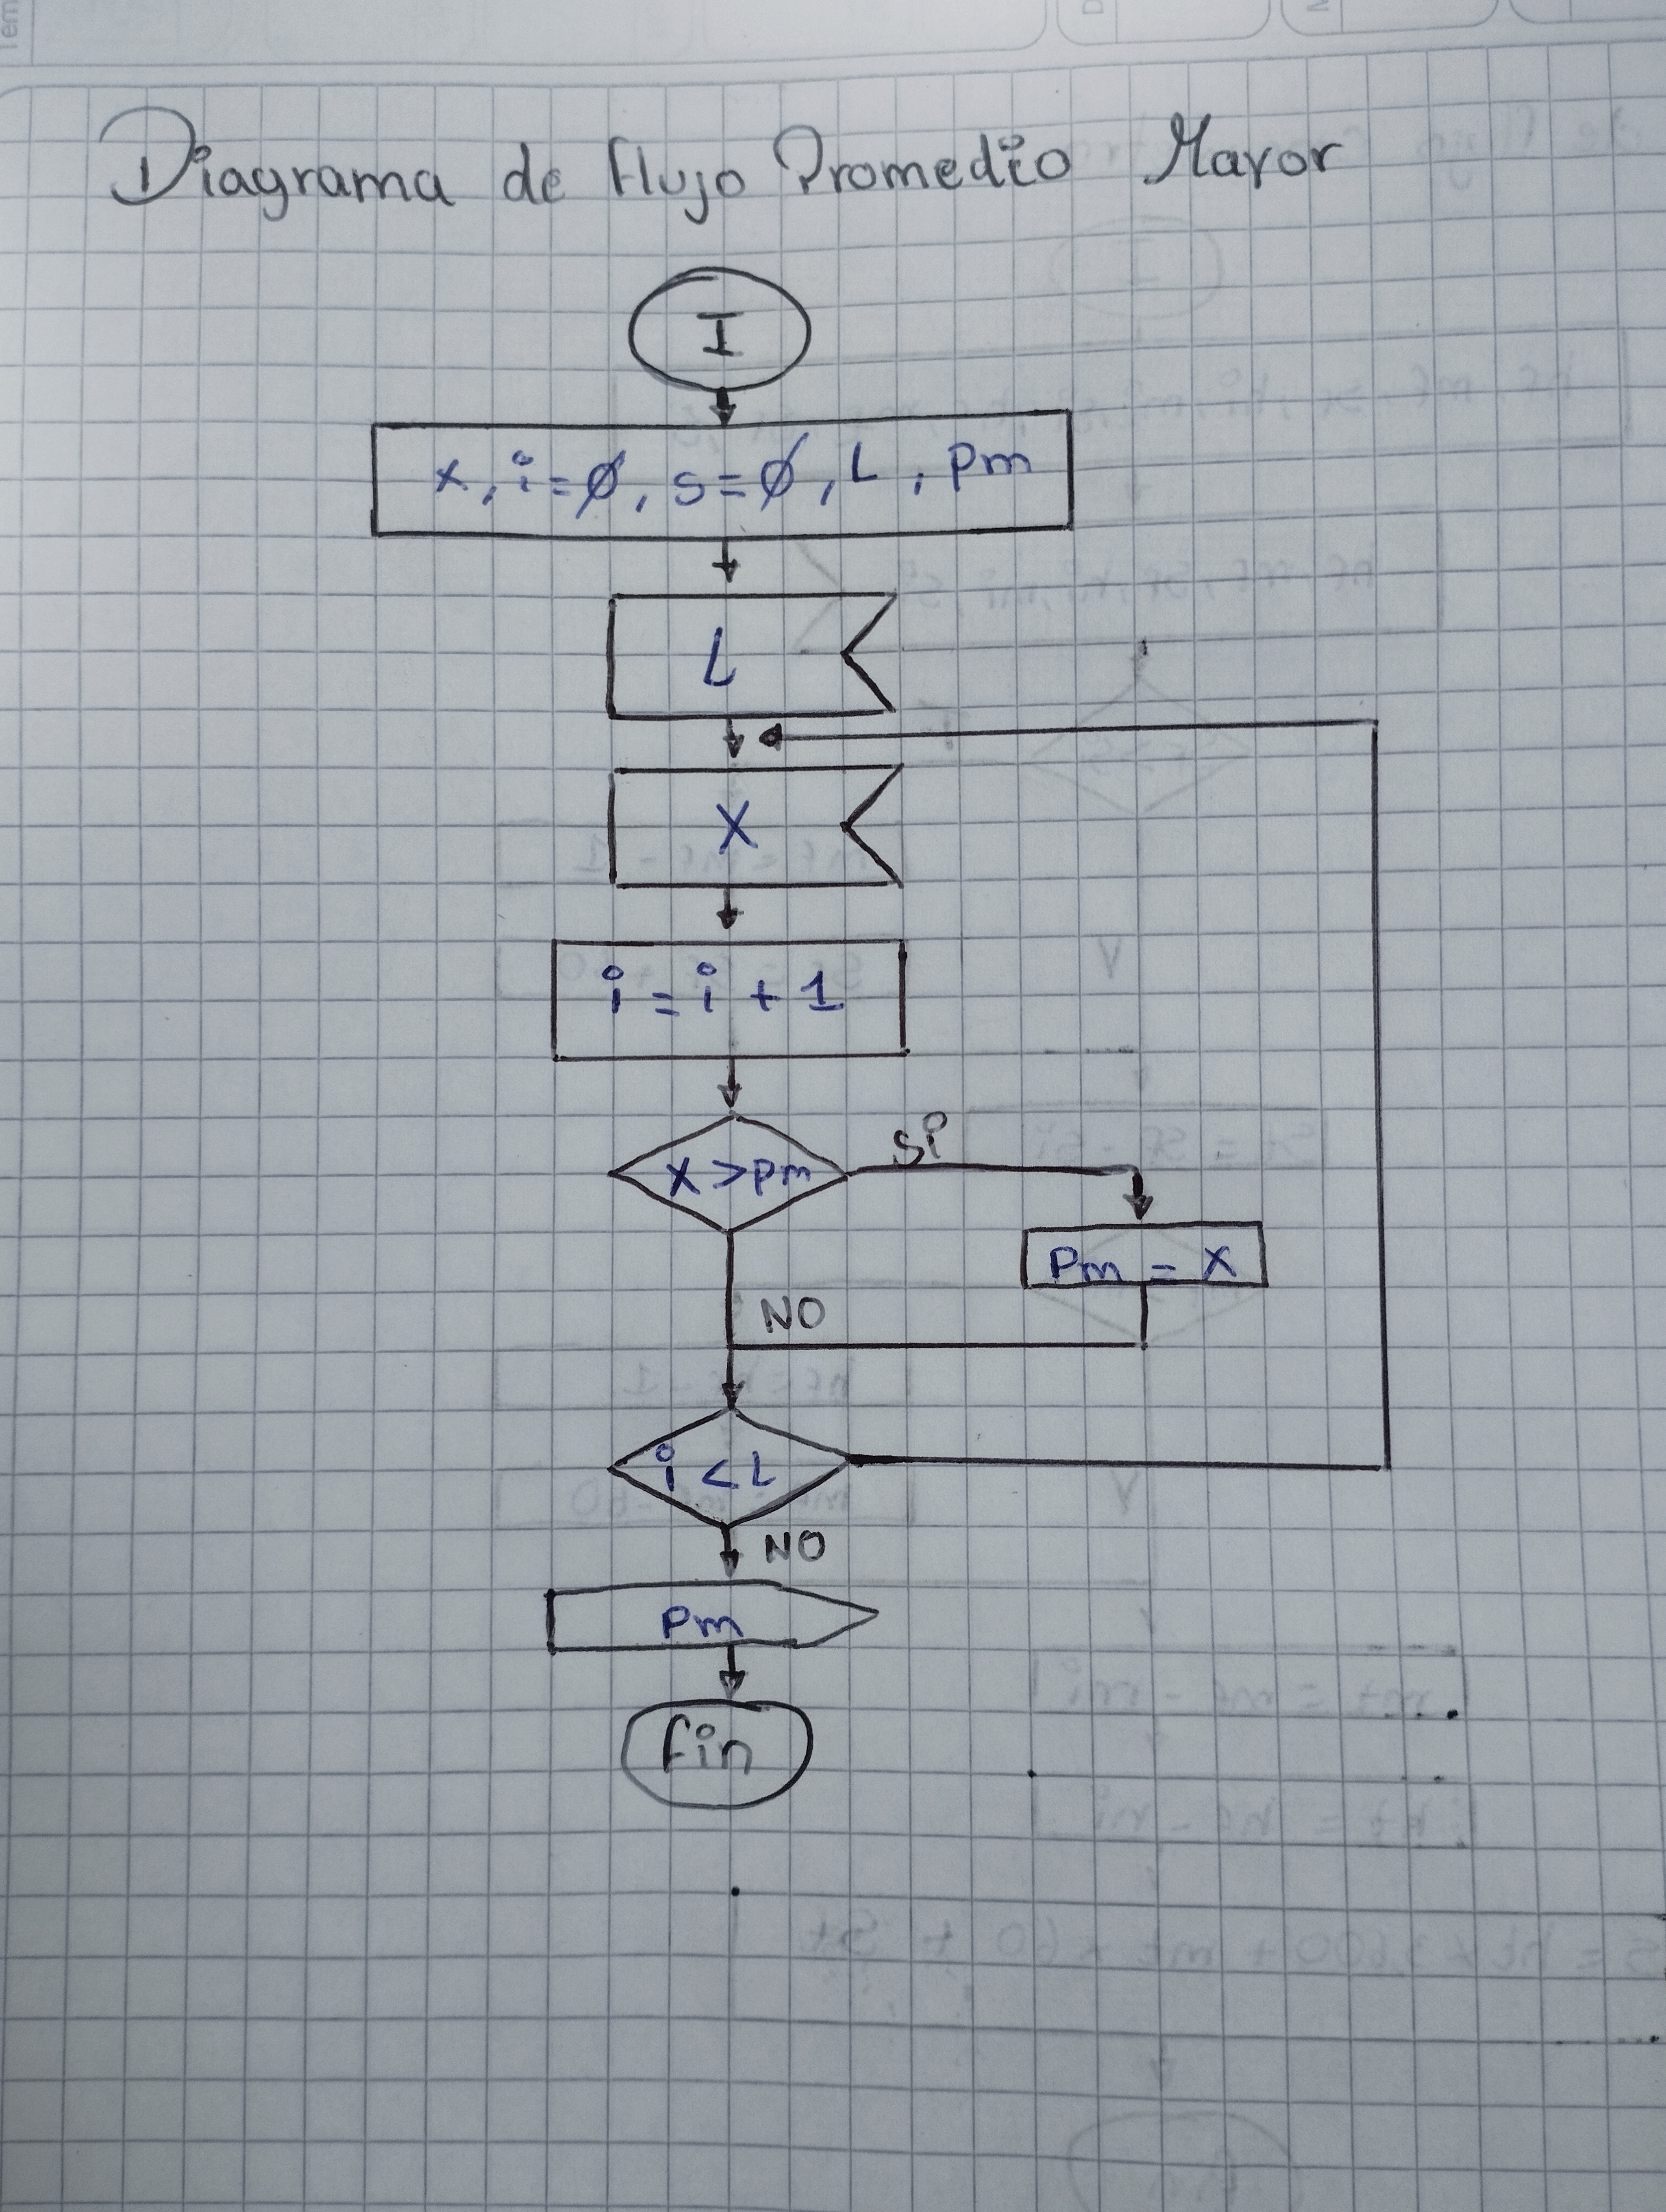 Diagrama de flujo Promedio Mayor
I
x, i=0, s=0, L, Pm
L
X
i = i + 1
X > Pm
Si
Pm = X
NO
i < L
NO
Pm
fin